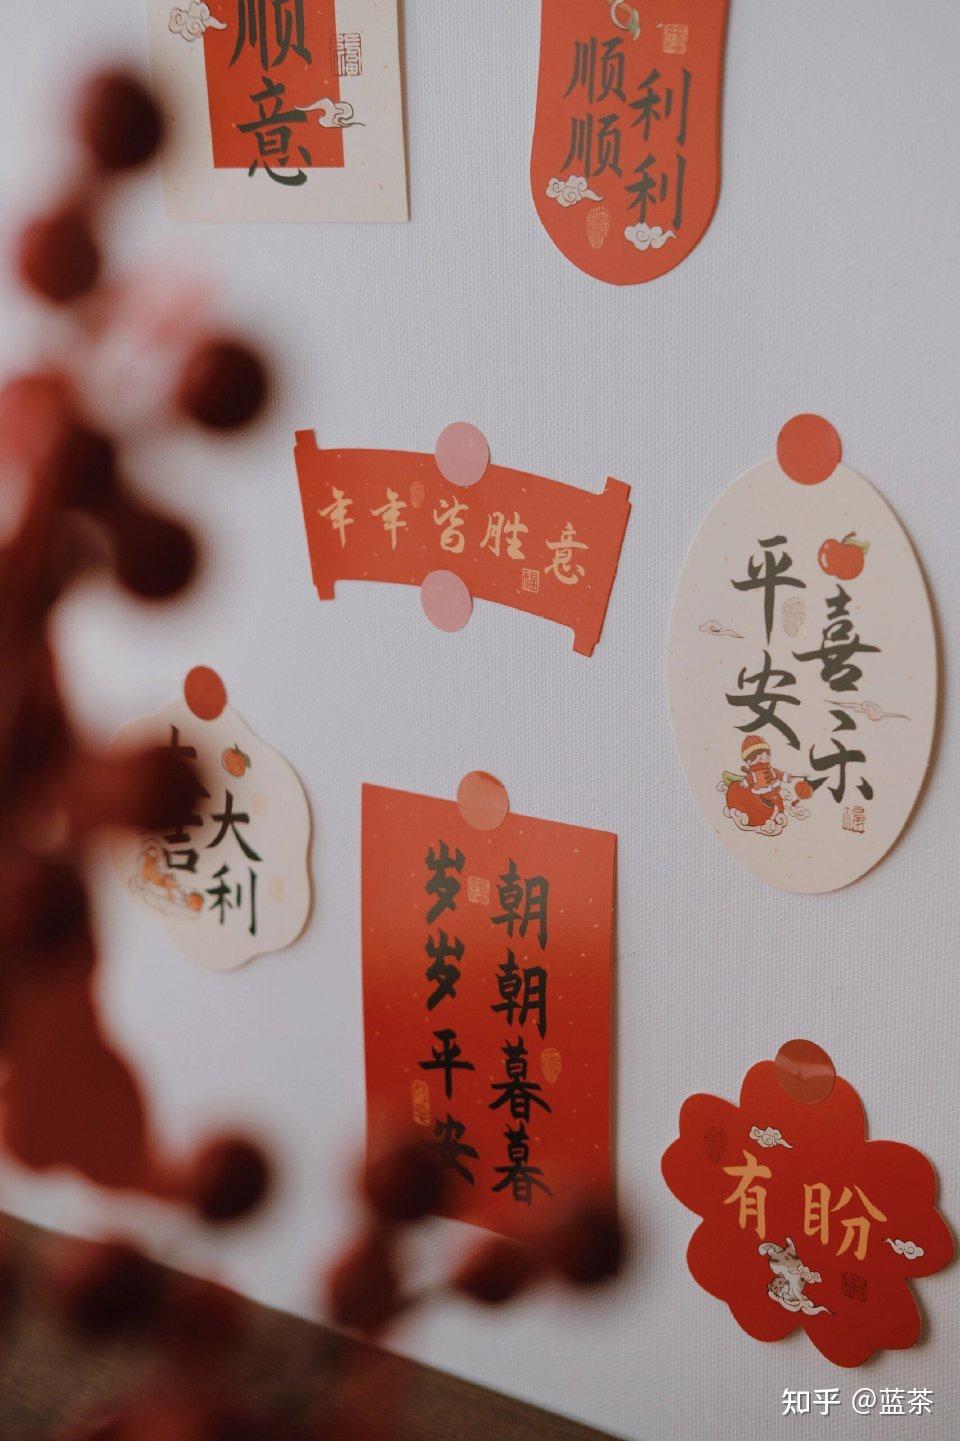 顺意
顺顺
利利
年年皆胜意
平安
喜乐
大吉
大利
岁岁平安
朝朝暮暮
有盼
知乎 @蓝茶